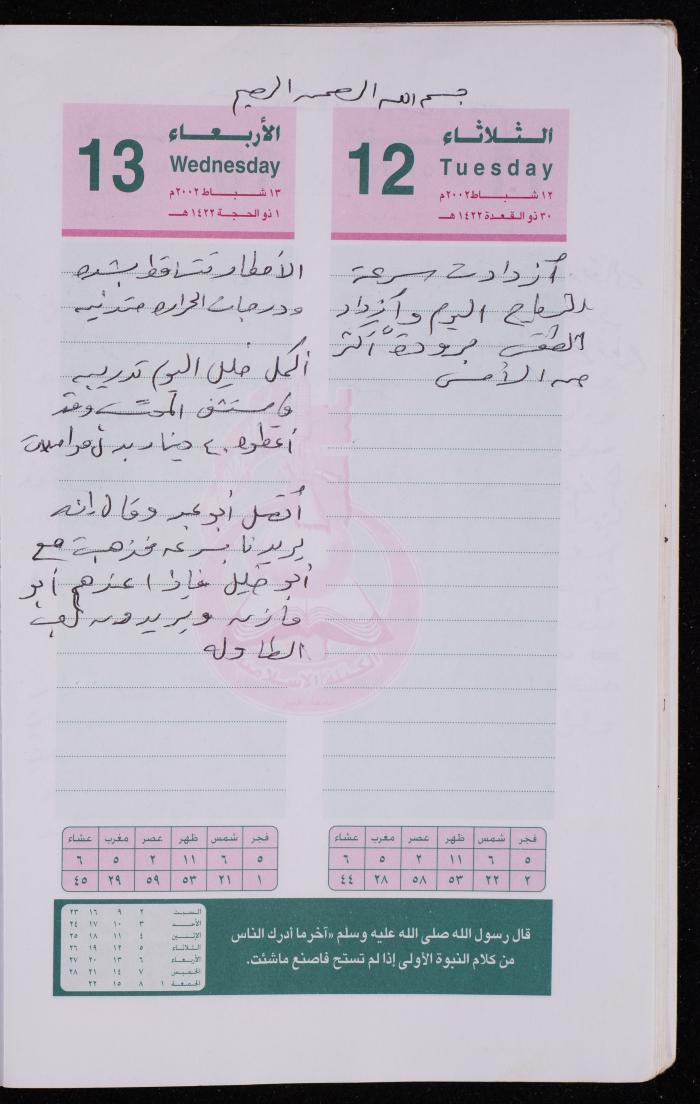 بسم الله الرحمن الرحيم
الثلاثاء
Tuesday
12
١٢ شباط ٢٠٠٢م
٣٠ ذو القعدة ١٤٢٢ هـ
أزدادت سرعة
الرياح اليوم وأزداد
الطقس برودةً أكثر
من الأمس
الأربعاء
Wednesday
13
١٣ شباط ٢٠٠٢م
١ ذو الحجة ١٤٢٢ هـ
الأمطار تتساقط بشده
ودرجات الحراره متدنيه
أكمل خليل اليوم تدريبه
أعطوه ٤٠ دينار بدل مواصلات
أتصل أبو عبد وقال انه
يريدنا بسرعه فذهبت مع
أبو خليل فإذا عندهم أبو
مازن ويريدون لعب
الطاوله
الكتلة الاسلامية
فجر شمس ظهر عصر مغرب عشاء
٥ ٦ ١١ ٢ ٥ ٦
٢ ٢٢ ٥٣ ٥٨ ٢٨ ٤٤
فجر شمس ظهر عصر مغرب عشاء
٥ ٦ ١١ ٢ ٥ ٦
١ ٢١ ٥٣ ٥٩ ٢٩ ٤٥
قال رسول الله صلى الله عليه وسلم «آخر ما أدرك الناس
من كلام النبوة الأولى إذا لم تستح فاصنع ماشئت.
السبت ٢ ٩ ١٦ ٢٣
الأحد ٣ ١٠ ١٧ ٢٤
الإثنين ٤ ١١ ١٨ ٢٥
الثلاثاء ٥ ١٢ ١٩ ٢٦
الأربعاء ٦ ١٣ ٢٠ ٢٧
الخميس ٧ ١٤ ٢١ ٢٨
الجمعة ١ ٨ ١٥ ٢٢